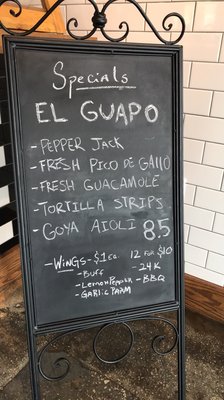 Specials
EL GUAPO
- PEPPER JACK
- FRESH PICO DE GALLO
- FRESH GUACAMOLE
- TORTILLA STRIPS
- GOYA AIOLI 8.5
- WINGS - $1 ea. 12 FOR $10
- Buff - 24K
- Lemon Pepper - BBQ
- GARLIC PARM